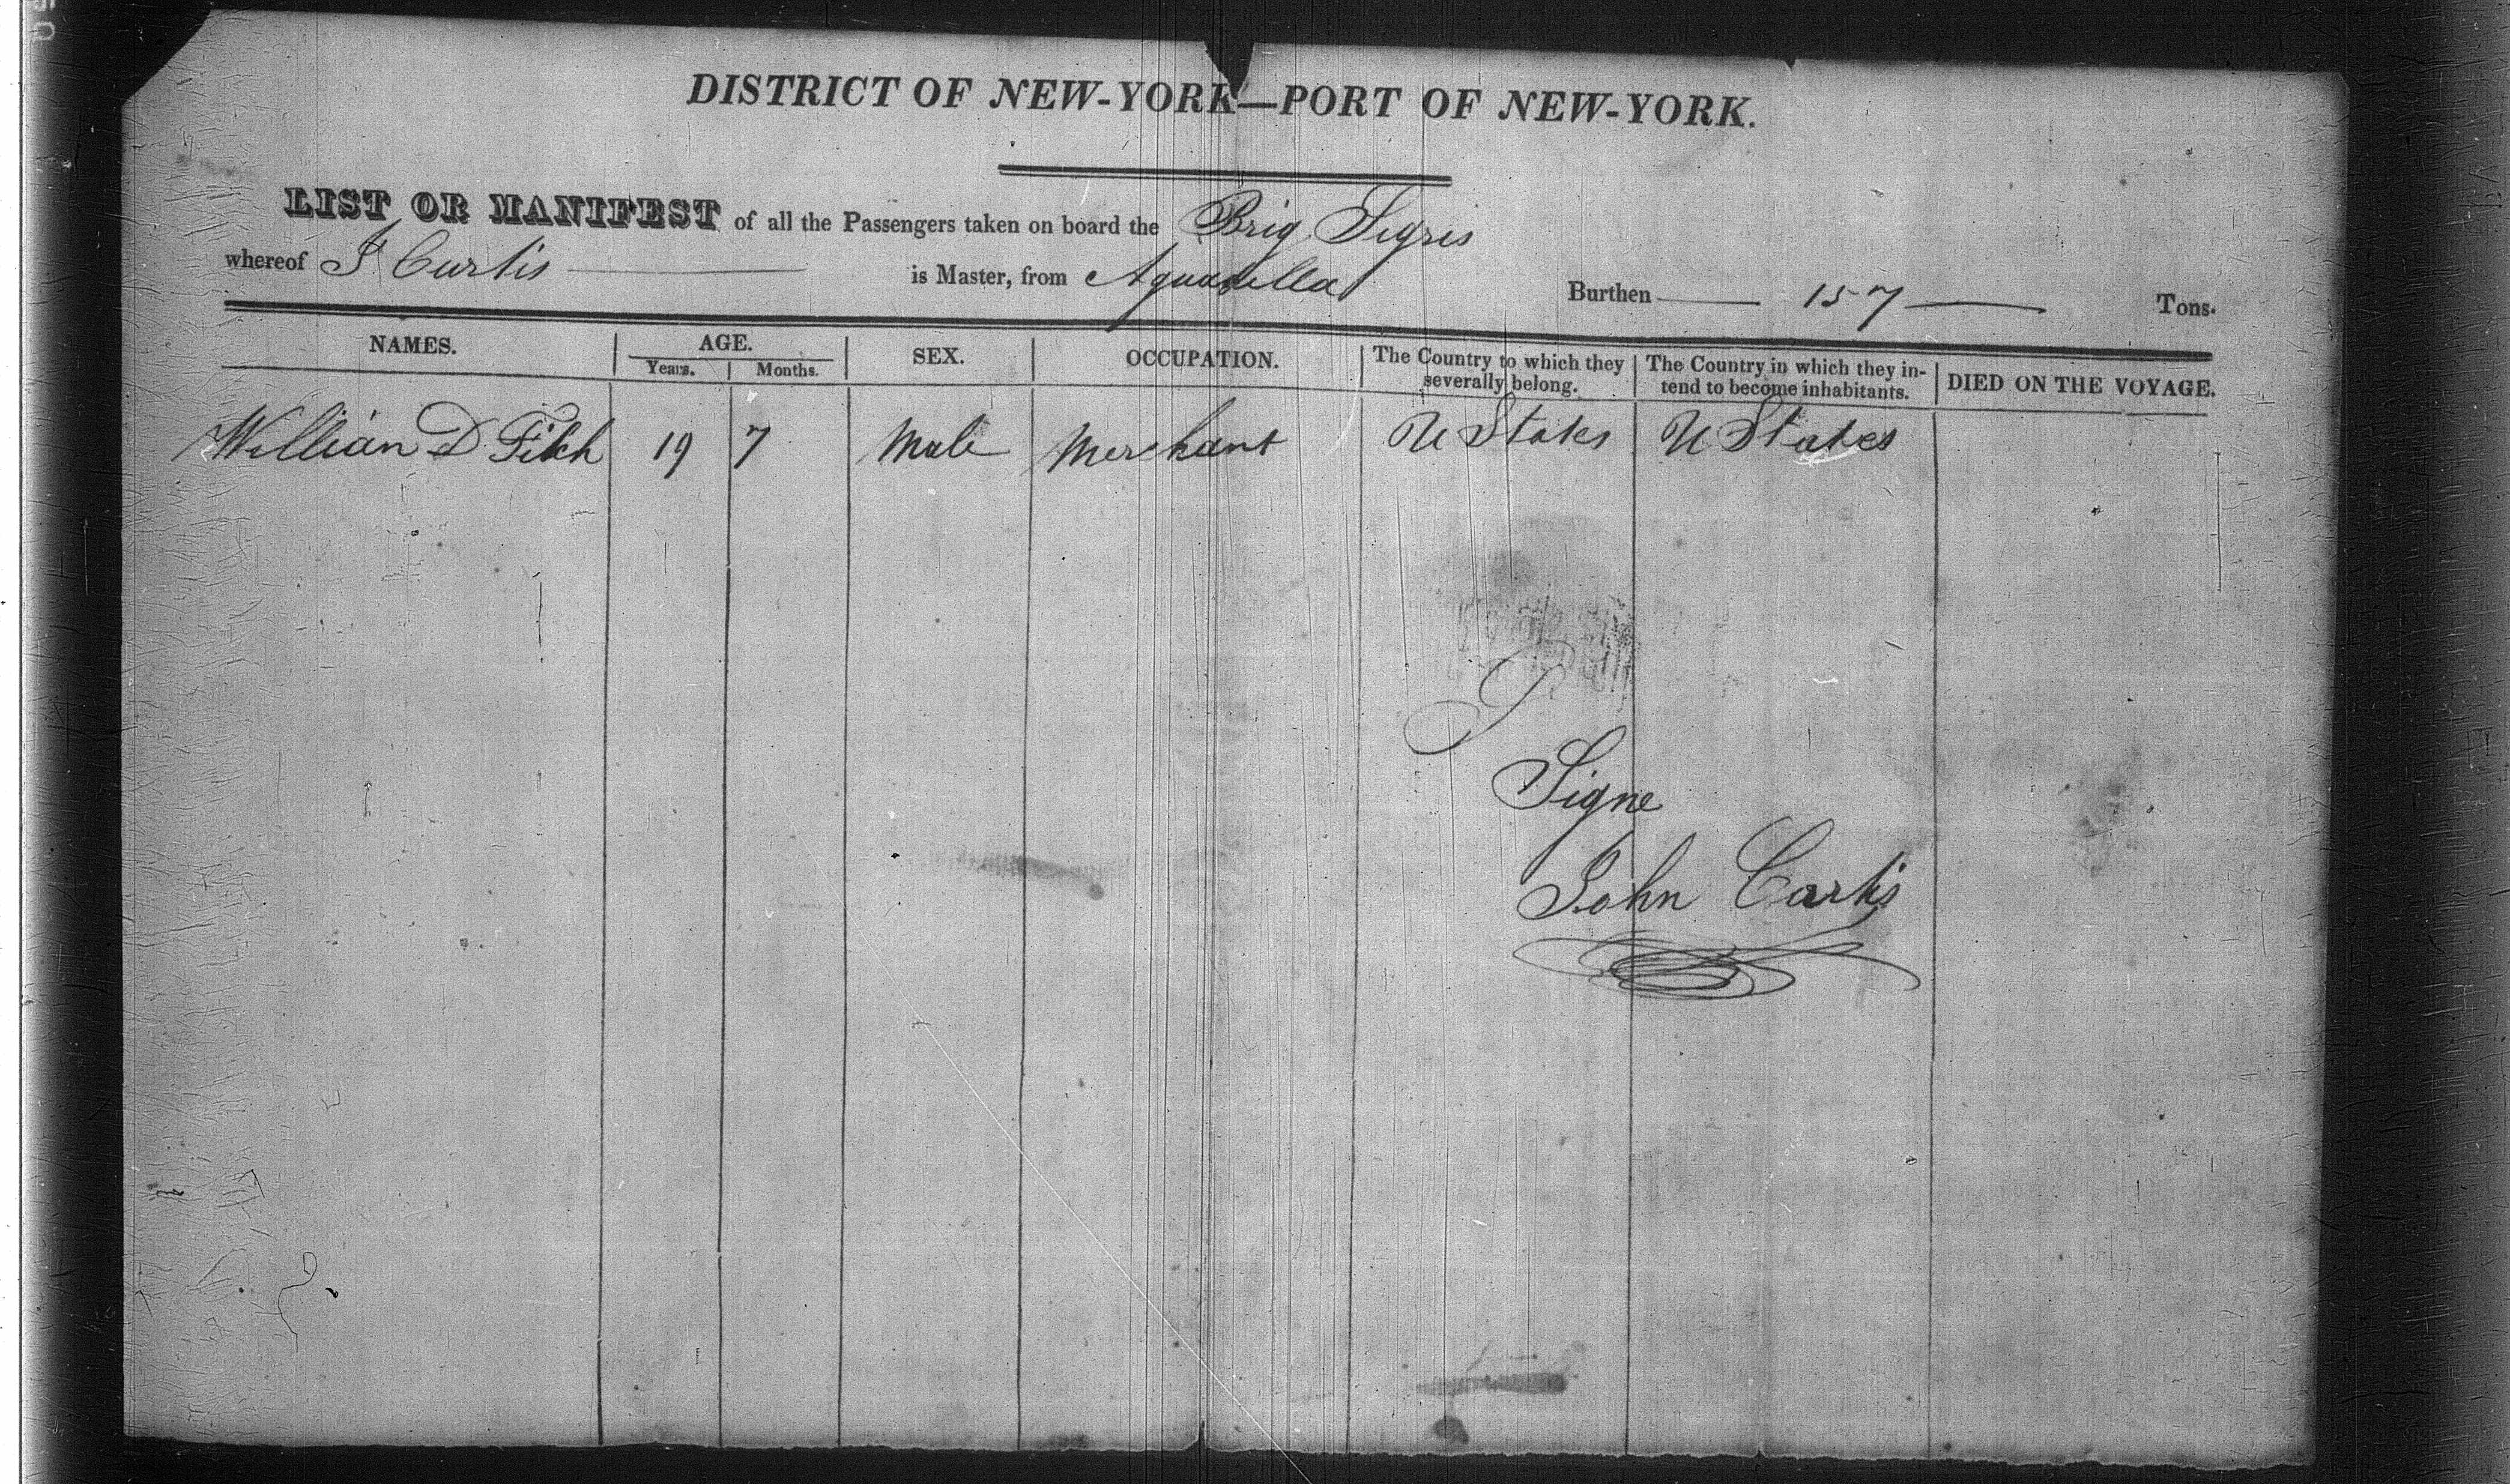 DISTRICT OF NEW-YORK—PORT OF NEW-YORK.
LIST OR MANIFEST of all the Passengers taken on board the Brig Tigris
whereof J Curtis is Master, from Aguadilla Burthen 157 Tons.
NAMES. AGE. Years. Months. SEX. OCCUPATION. The Country to which they severally belong. The Country in which they intend to become inhabitants. DIED ON THE VOYAGE.
William D Fitch 19 7 Male Merchant U States U States
Signe
John Curtis